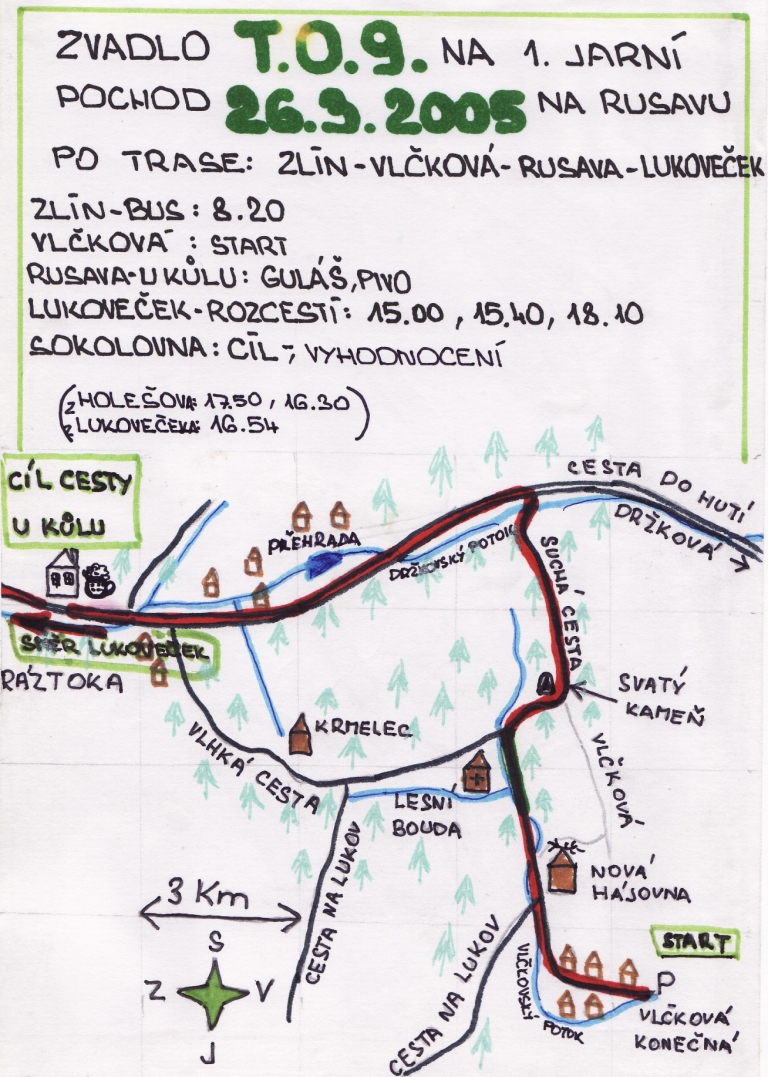 ZVADLO T.O.9. NA 1. JARNÍ
POCHOD 26.3.2005 NA RUSAVU
PO TRASE: ZLÍN-VLČKOVÁ-RUSAVA-LUKOVEČEK
ZLÍN-BUS: 8.20
VLČKOVÁ: START
RUSAVA-U KŮLU: GULÁŠ, PIVO
LUKOVEČEK-ROZCESTÍ: 15.00, 15.40, 18.10
SOKOLOVNA: CÍL-, VYHODNOCENÍ
(z HOLEŠOVA: 17.50, 16.30)
z LUKOVEČEKA: 16.54
CÍL CESTY
U KŮLU
CESTA DO HUTÍ
DRŽKOVÁ
PŘEHRADA
DRŽKOVSKÝ POTOK
SUCHÁ CESTA
SMĚR LUKOVEČEK
RÁZTOKA
SVATÝ
KAMEŇ
KRMELEC
VLHKÁ CESTA
VLČKOVÁ
LESNÍ
BOUDA
CESTA NA LUKOV
NOVÁ
HÁJOVNA
3 Km
S
Z V
J
CESTA NA LUKOV
VLČKOVSKÝ
POTOK
START
P
VLČKOVÁ
KONEČNÁ